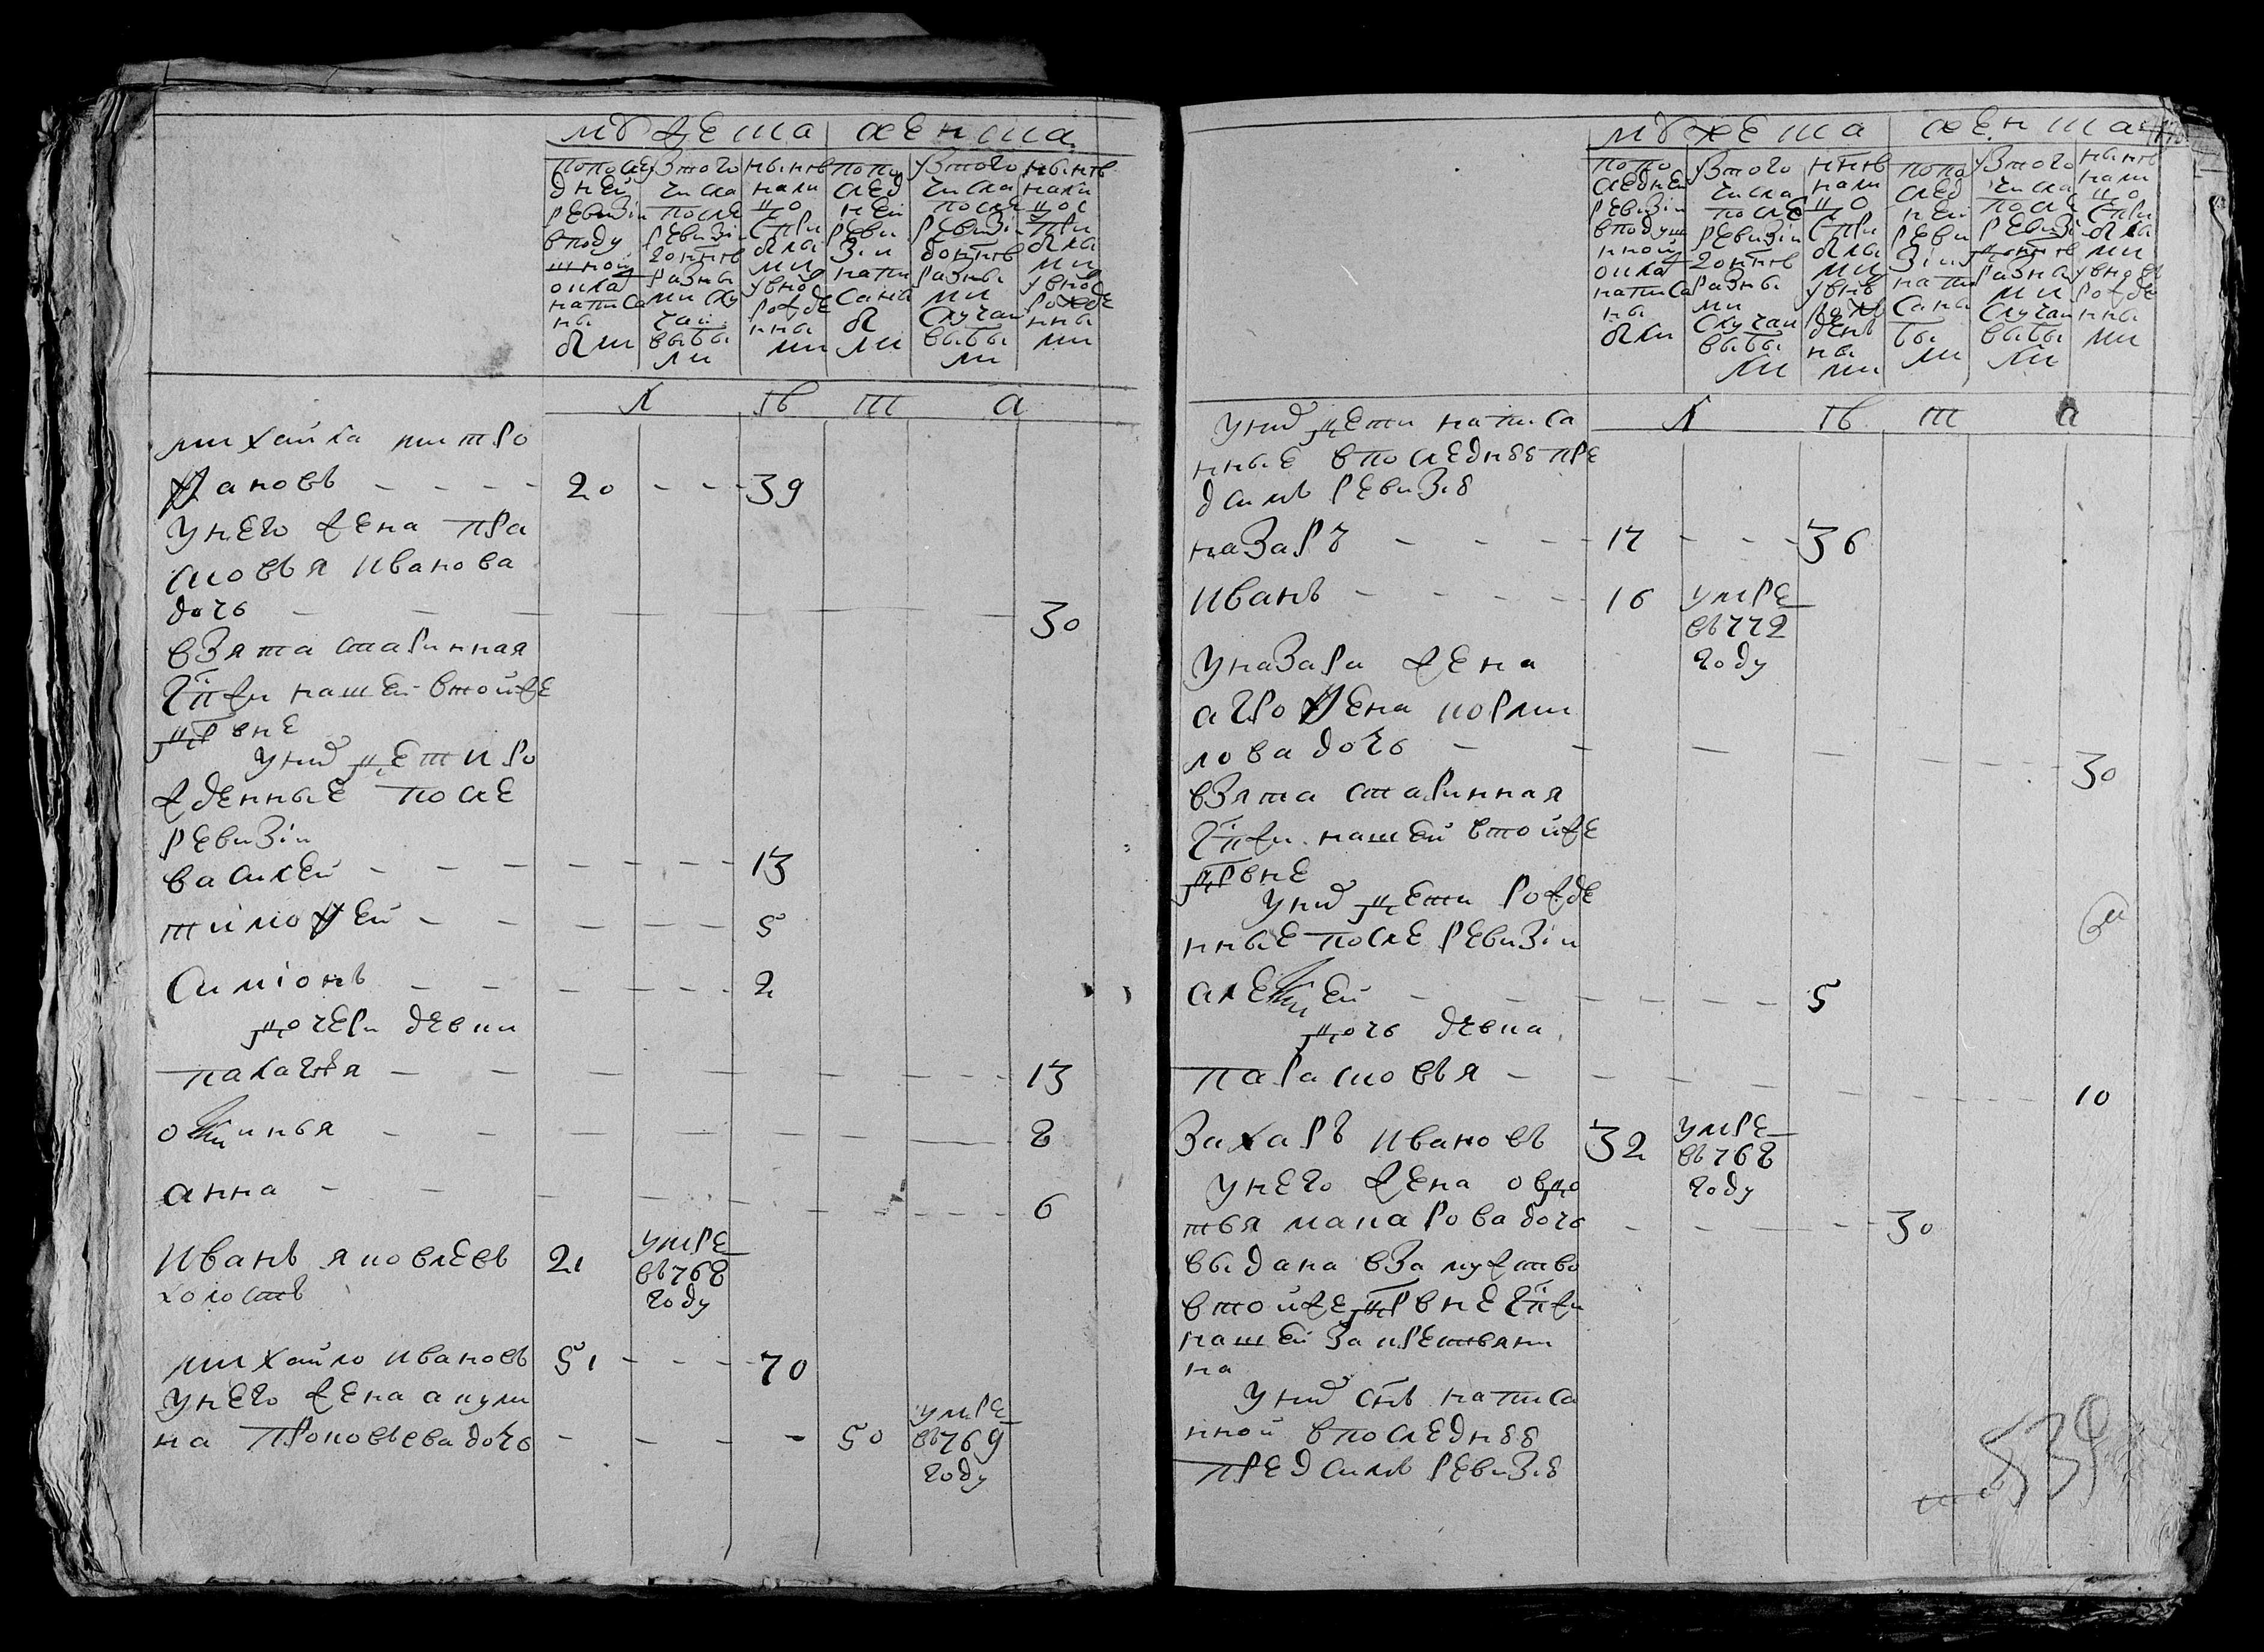 мужеска женска
попослѣ
дней
ревизіи
вподу
шной
окла
написа
ны
были
ізтого
числа
после
ревизіи
доннѣ
разны
ми слу
чаи
выбы
ли
нынѣ
нали
цо
спри
были
ми
ивно
рожде
нны
ми
попо
след
ней
реви
зіи
напи
саны
бы
ли
ізтого
числа
после
ревизіи
доннѣ
разны
ми
случаи
выбы
ли
нынѣ
нали
цо с
при
были
ми
ивно
рожде
нны
ми
л ѣ т а
михаила митро
фановъ 20 39
унего жена пра
сковья иванова
дочь 30
взята старинная
гпжи нашей втойже
дрвне
уних дети ро
жденные после
ревизіи
василей 13
тимофей 5
симіонъ 2
дочери девки
палагѣя 13
оксинья 8
анна 6
иванъ яковлевъ 21 умре
въ768
холостъ году
михайло ивановъ 51 70
унего жена акули
на прокофьева дочь 50 умре
въ769
году
мужеска женска
попо
следней
ревизіи
вподуш
нной
окла
написа
ны
были
ізтого
числа
после
ревизіи
доннѣ
разны
ми
случаи
выбы
ли
ннѣ
нали
цо
спри
были
ми
ивнѣ
рож
денъ
ны
ми
попо
след
ней
реви
зіи
напи
саны
бы
ли
ізтого
числа
после
ревизіи
доннѣ
разны
ми
случаи
выбы
ли
нынѣ
нали
цо
спри
были
ми
ивнов
рожде
нны
ми
л ѣ т а
уних дети написа
нные впоследнюю пре
дсимъ ревизію
назаръ 17 36
иванъ 16 умре
въ772
году
уназара жена
аграфена корми
лова дочь 30
взята старинная
гпжи нашей втойже
дрвне
уних дети рожде
нные после ревизіи
алексей 5
дочь девка
парасковья 10
захаръ ивановъ 32 умре
въ768
году
унего жена овдо
тья макарова дочь 30
выдана взамужство
втойже дрвне гпжи
нашей закрестьяни
на
уних снъ написа
нной впоследнюю
предсимъ ревизію
539